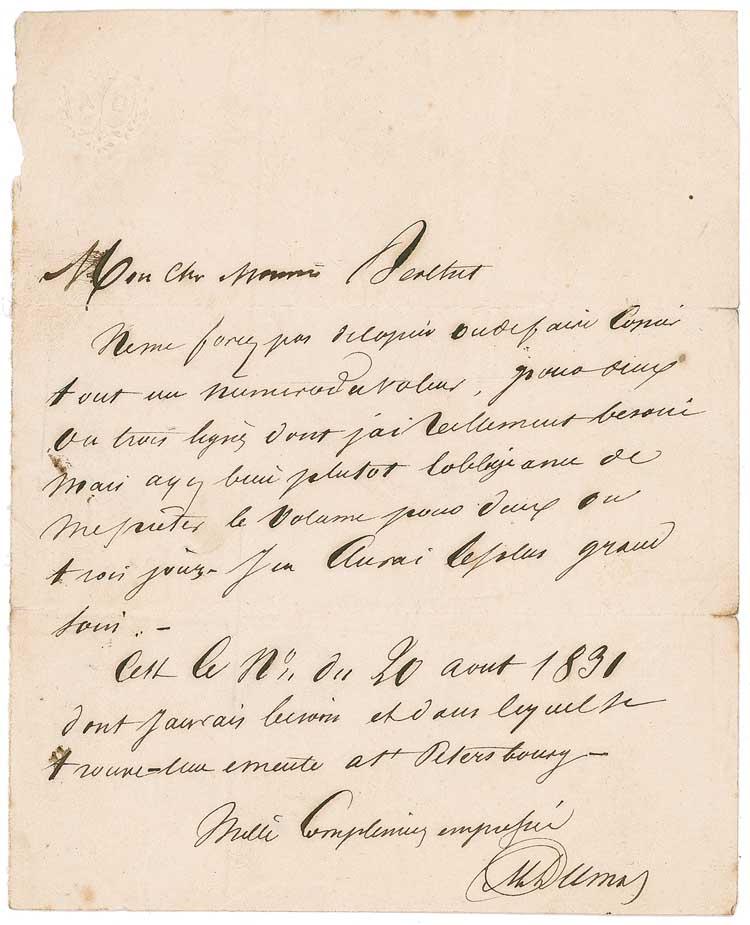 Mon cher Monsieur Berthet
Ne me forcez pas de copier ou de faire copier
tout un numero du voleur, pour deux
ou trois lignes dont j'ai réellement besoin
mais ayez bien plutot l'obligeance de
me preter le volume pour deux ou
trois jours – J'en aurai le plus grand
soin. –
C'est le No. du 20 aout 1831
dont j'aurais besoin et dans lequel se
trouve une emeute a St Petersbourg –
Mille Compliments empressés
Al Dumas